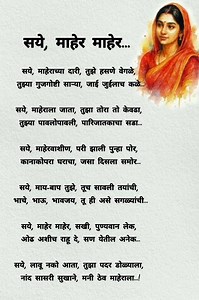 सये, माहेर माहेर...
सये, माहेराच्या दारी, तुझे हसणे वेगळे,
तुझ्या गुजगोष्टी साऱ्या, जाई जुईलाच कळे..
सये, माहेराला जाता, तुझा तोरा तो केवढा,
तुझ्या पावलोपावली, पारिजातकाचा सडा..
सये, माहेरवाशीण, परी झाली पुन्हा पोर,
कानाकोपरा घराचा, जसा दिसला समोर..
सये, माय-बाप तुझे, तूच सावली तयांची,
भाचे, भाऊ, भावजय, तू ही असे सगळ्यांची..
सये, माहेर माहेर, सखी, पुण्यवान लेक,
ओढ अशीच राहू दे, सण येतील अनेक..
सये, लावू नको आता, तुझा पदर डोळ्याला,
नांद सासरी सुखाने, मनी ठेव माहेराला..!